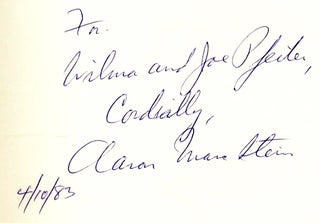 For
Wilma and Joe Pfeifer,
Cordially,
Aaron Marc Stein
4/10/83